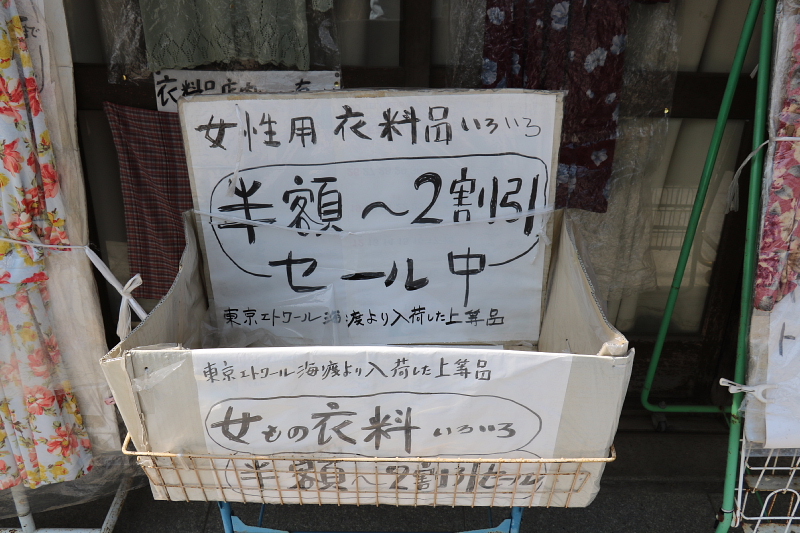 衣料品店内
女性用 衣料品いろいろ
半額～2割引
セール中
東京エトワール海渡より入荷した上等品
東京エトワール海渡より入荷した上等品
女もの衣料 いろいろ
半額～2割引セール
ト